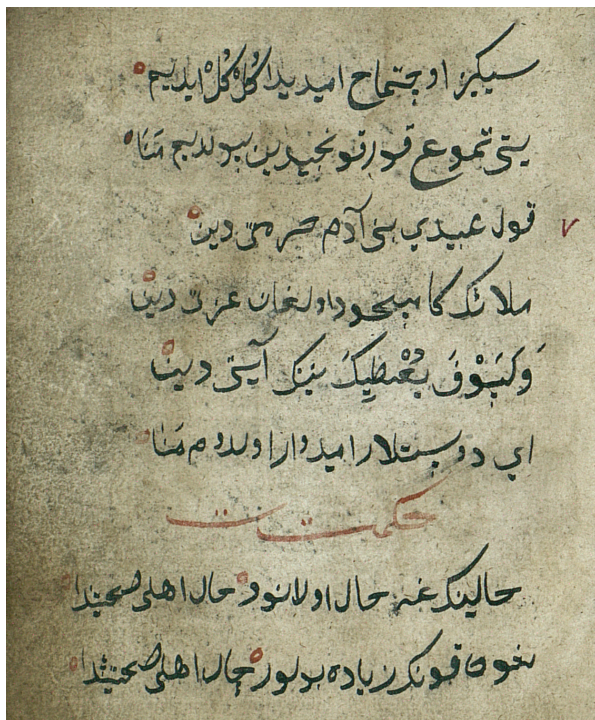 سیکیز اوچتماح امیدیدا کُلْ کُلْ ایدیم
یتی تموغ قورقونجیدین بولدیم مَنَا
قول عبیدی بنی آدم حرمتی دین
ملائک کا مسجود اولغان عزتی دین
وَلَسَوْفَ یُعْطِیکَ نینک آیتی دین
ای دوستلار امیدوار اولدوم مَنَا
حکمت
حالینک غه حال اولانور حال اهلی صحبتیدا
قونک زیاده بولور حال اهلی صحبتیدا